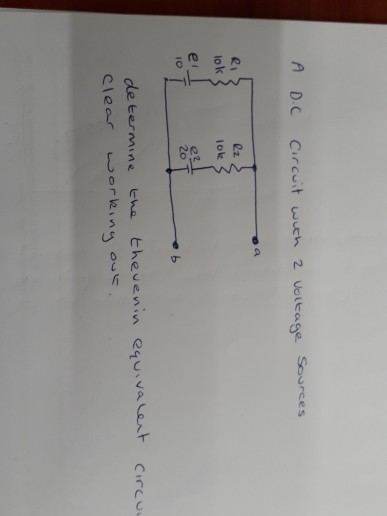 A D.C Circuit with 2 Voltage Sources
a
R1
10k
R2
10k
e1
10
e2
20
b
determine the thevenin equivalent circui
Clear working out.